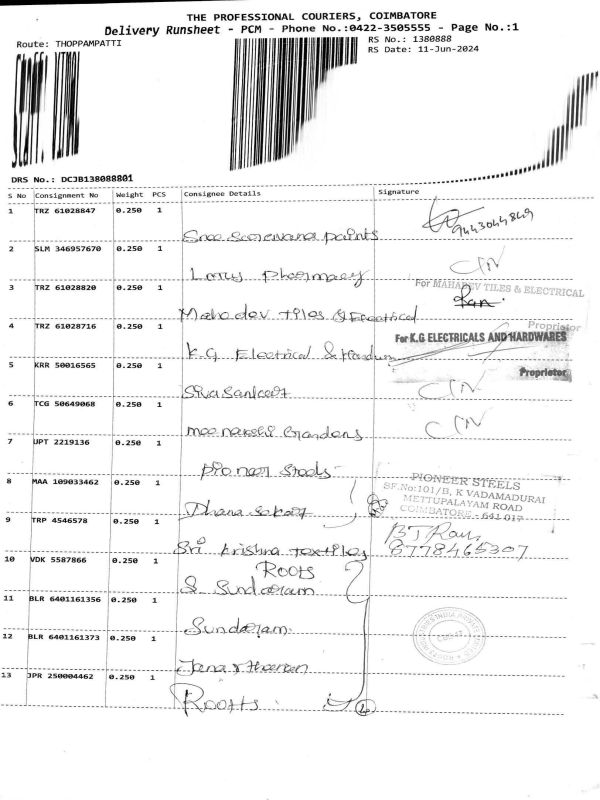 THE PROFESSIONAL COURIERS, COIMBATORE
Delivery Runsheet - PCM - Phone No.:0422-3505555 - Page No.:1
Route: THOPPAMPATTI RS No.: 1380888
RS Date: 11-Jun-2024
DRS No.: DCJB138088801
S No Consignment No Weight PCS Consignee Details Signature
1 TRZ 61028847 0.250 1 Sree Saravana paints 9443044849
2 SLM 346957670 0.250 1 Lotus Pharmacy
3 TRZ 61028820 0.250 1 Mahadev tiles & Electrical For MAHADEV TILES & ELECTRICAL
Proprietor
4 TRZ 61028716 0.250 1 K.G Electrical & Hardware For K.G ELECTRICALS AND HARDWARES
Proprietor
5 KRR 50016565 0.250 1 Siva Sankar
6 TCG 50649068 0.250 1 meenakshi Gardens
7 UPT 2219136 0.250 1 pioneer Steels
8 MAA 109033462 0.250 1 Dhana Sekar PIONEER STEELS
SF.No:101/B, K VADAMADURAI
METTUPALAYAM ROAD
COIMBATORE - 641 017
9 TRP 4546578 0.250 1 Sri krishna textiles
8778465307
10 VDK 5587866 0.250 1 Roots
S. Sundaram
11 BLR 6401161356 0.250 1 Sundaram.
12 BLR 6401161373 0.250 1
13 JPR 250004462 0.250 1 Roots. 4